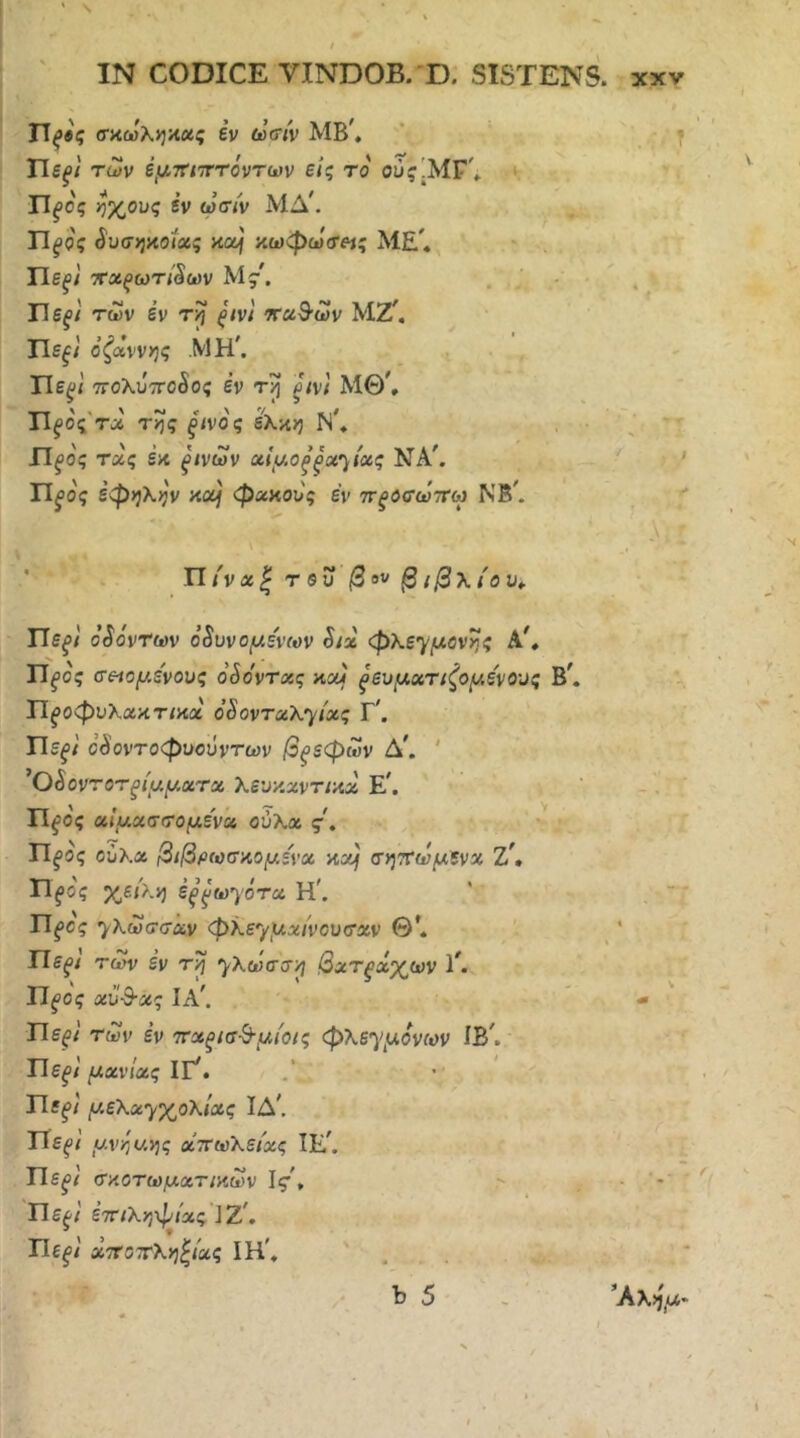 IN CODICE VINDOB. D. SISTENS. xxv
Πρὸς σκώληκας ἐν ὠσίν ΜΒ'.
Περὶ τῶν ἐμπιπτόντων εἰς τὸ οὖς ΜΓ'.
Πρὸς ἤχους ἐν ὠσίν ΜΔ'.
Πρὸς δυσηκοΐας καὶ κωφώσεις ΜΕ'.
Περὶ παρωτίδων Μϛ'.
Περὶ τῶν ἐν τῇ ῥινὶ παθῶν ΜΖ'.
Περὶ ὀζάννης ΜΗ'.
Περὶ πολύποδος ἐν τῇ ῥινὶ ΜΘ'.
Πρὸς τὰ τῆς ῥινὸς ἕλκη Ν'.
Πρὸς τὰς ἐκ ῥινῶν αἱμορῥαγίας ΝΑ'.
Πρὸς ἐφηλὴν καὶ φακοὺς ἐν προσώπῳ ΝΒ'.
Πίναξ τοῦ βου βιβλίου.
Περὶ ὀδόντων ὀδυνομένων διὰ φλεγμονῆς Α'.
Πρὸς σειομένους ὀδόντας καὶ ῥευματιζομένους Β'.
Προφυλακτικὰ ὀδονταλγίας Γ'.
Περὶ ὀδοντοφυούντων βρεφῶν Δ'.
Ὀδοντοτρίμματα λευκαντικὰ Ε'.
Πρὸς αἱμασσομένα οὖλα ϛ'.
Πρὸς οὖλα βιβρωσκομένα καὶ σηπώμενα Ζ'.
Πρὸς χείλη ἐῤῥωγότα Η'.
Πρὸς γλῶσσὰν φλεγμαίνουσαν Θ'.
Περὶ τῶν ἐν τῇ γλώσσῃ βατράχων Ι'.
Πρὸς αὔθας ΙΑ'.
Περὶ τῶν ἐν παρισθμίοις φλεγμόνων ΙΒ'.
Περὶ μανίας ΙΓ'.
Περὶ μελαγχολίας ΙΔ'.
Περὶ μνήμης ἀπωλείας ΙΕ'.
Περὶ σκοτωματικῶν Ιϛ'.
Περὶ ἐπιληψίας ΙΖ'.
Περὶ ἀποπληξίας ΙΗ'.
b 5 Ἀλήμ-